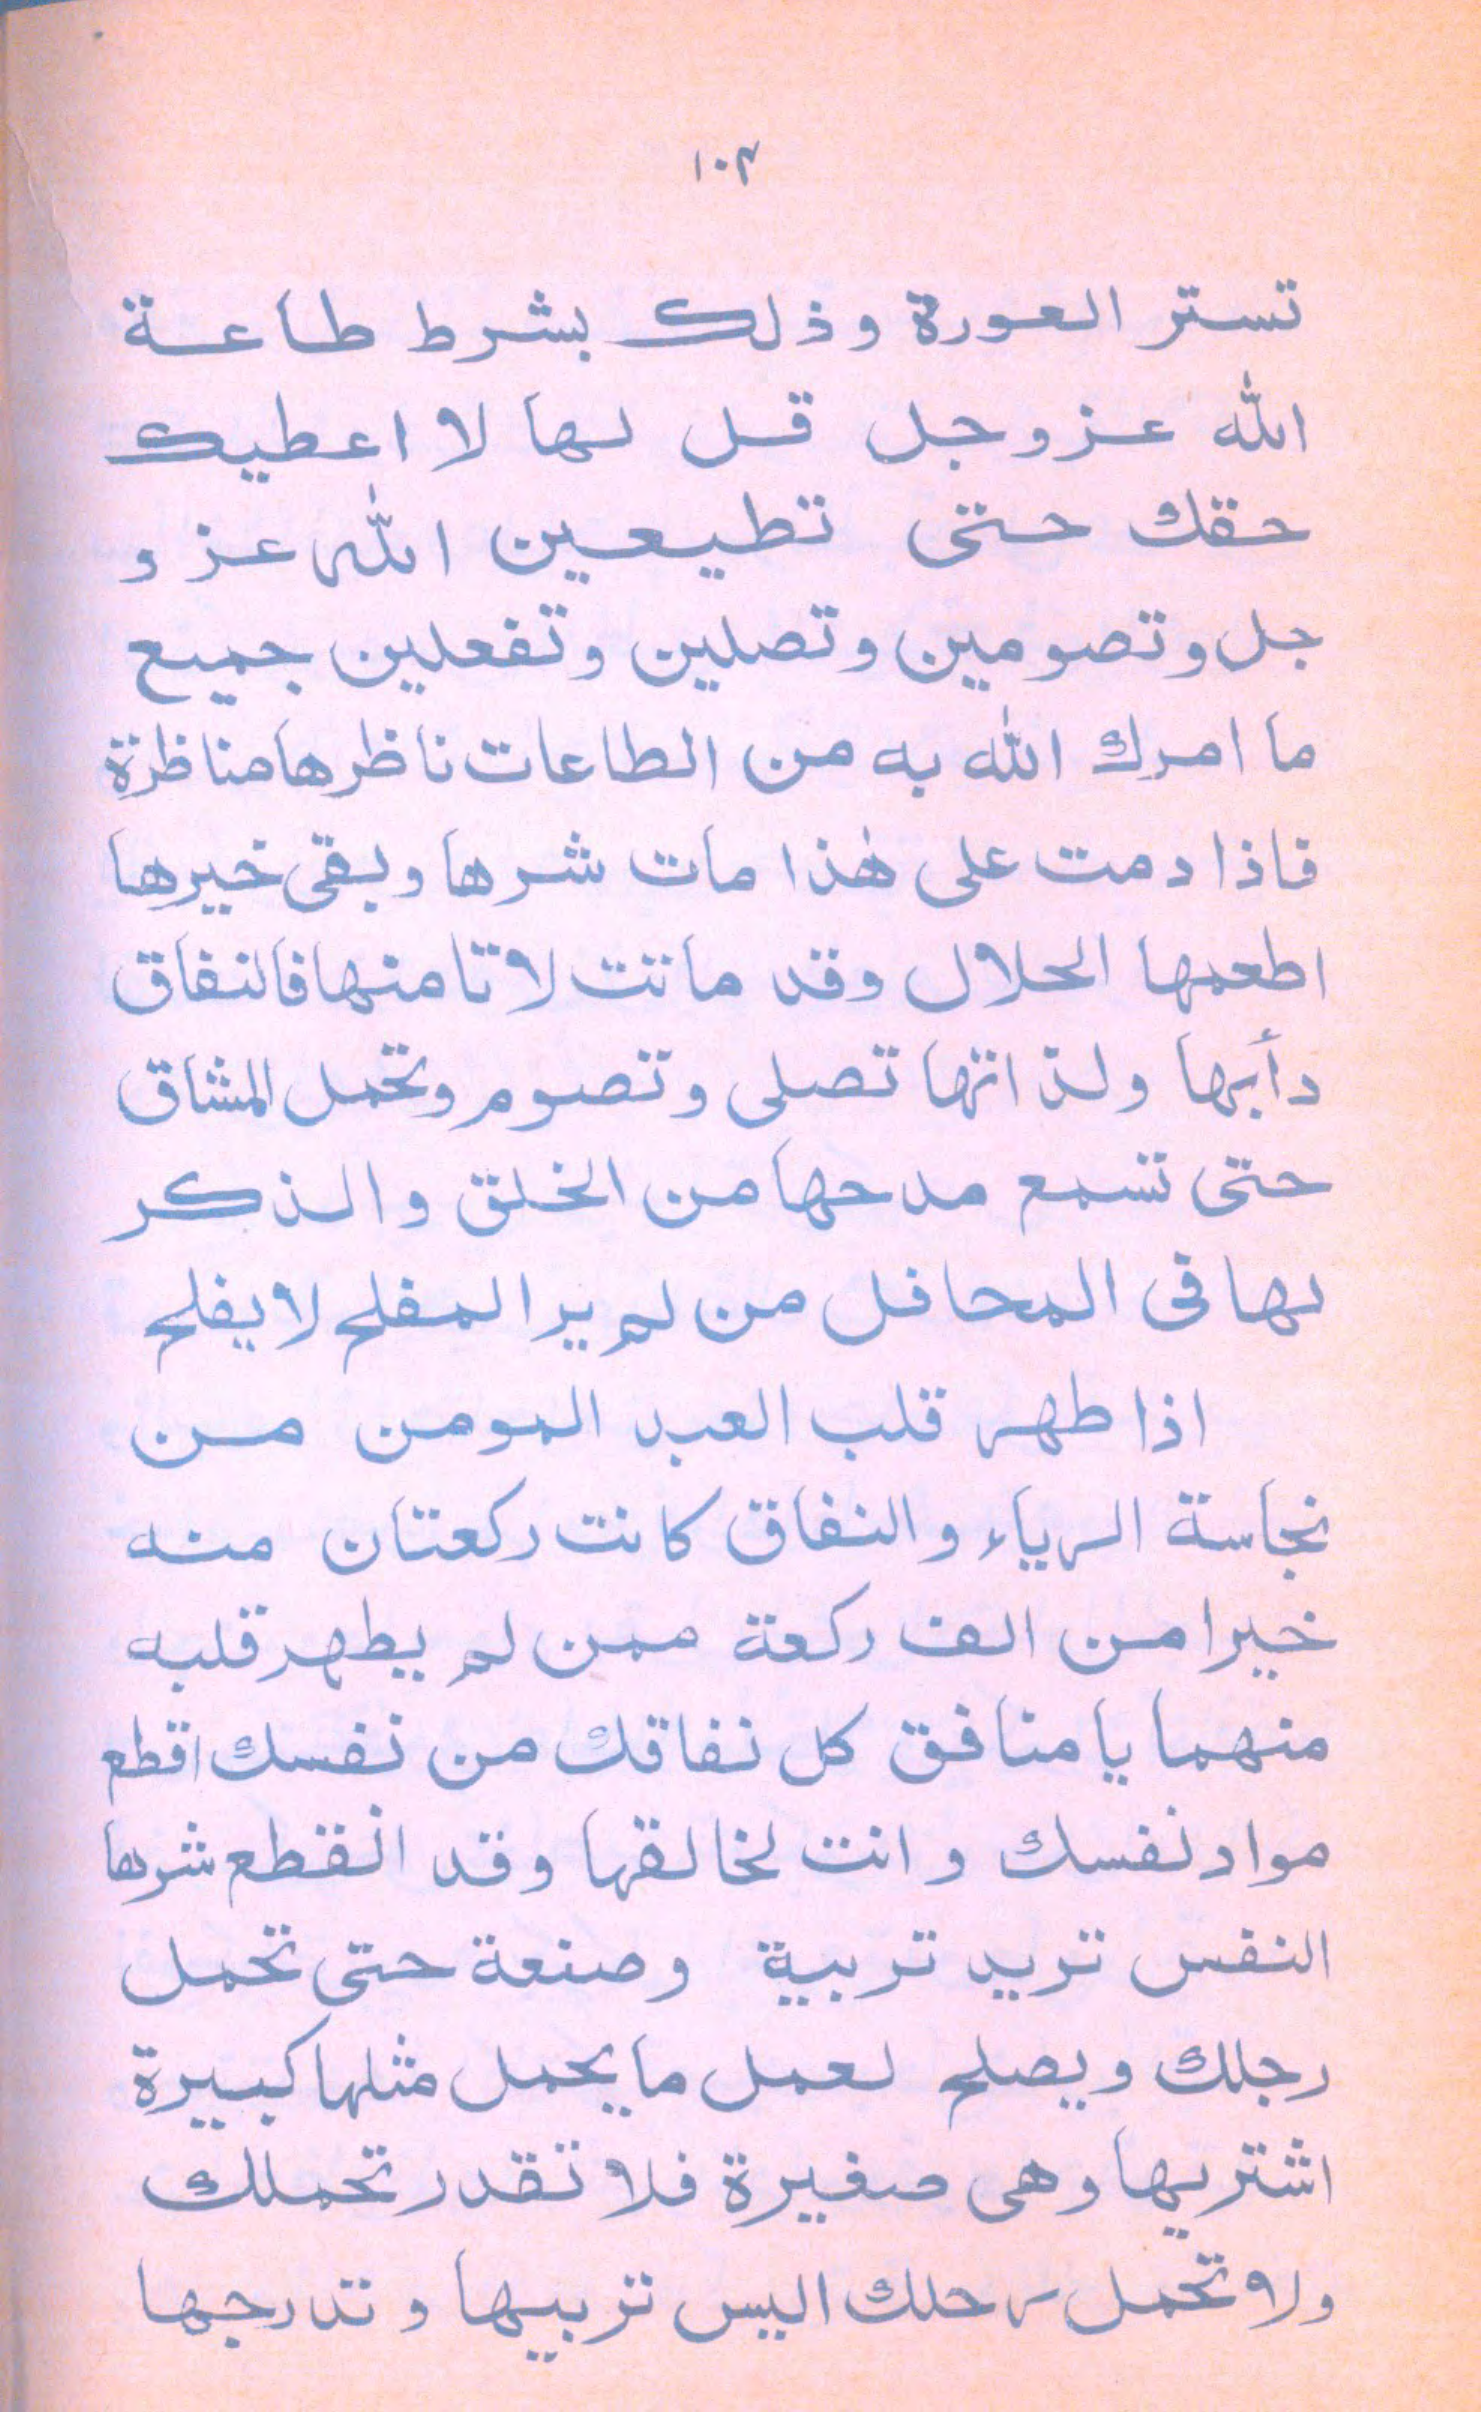 ١٠٣
تستر العورة وذلك بشرط طاعة
الله عزوجل قل لها لا اعطيك
حقك حتى تطيعين الله عزو
جل وتصومين وتصلين وتفعلين جميع
ما امرك الله به من الطاعات ناظرها مناظرة
فاذا دمت على هٰذا مات شرها وبقى خيرها
اطعمها الحلال وقد ماتت لا تامنها فالنفاق
دأبها ولذ اتها تصلى وتصوم وتحمل المشاق
حتى تسمع مدحها من الخلق والذكر
لها فى المحافل من لم ير المفلح لا يفلح
اذا طهر قلب العبد المومن من
نجاسة الرياء والنفاق كانت ركعتان منه
خيرا من الف ركعة ممن لم يطهر قلبه
منهما يا منافق كل نفاقك من نفسك اقطع
مواد نفسك وانت لخالقها وقد انقطع شرها
النفس تريد تربية وصنعة حتى تحمل
رجلك ويصلح لعمل ما يحمل مثلها كبيرة
اشتريها وهى صغيرة فلا تقدر تحملك
ولا تحمل رحلك اليس تربيها وتدرجها